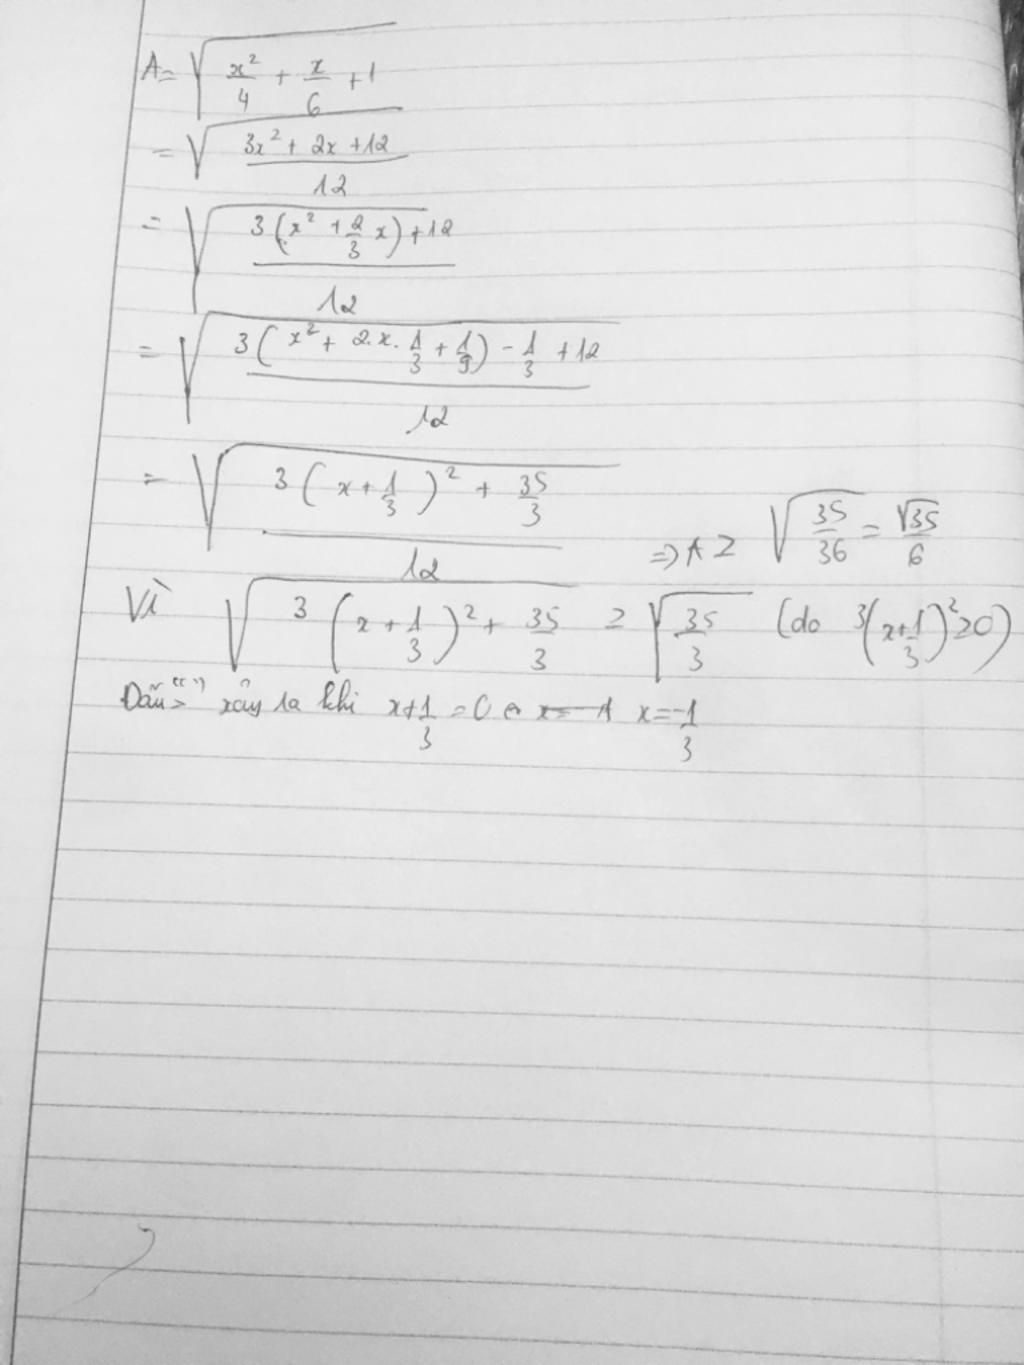 A = √(x²/4 + x/6 + 1)
= √((3x² + 2x + 12)/12)
= √((3(x² + 2/3 x) + 12)/12)
= √((3(x² + 2.x.1/3 + 1/9) - 1/3 + 12)/12)
= √((3(x + 1/3)² + 35/3)/12)
=> A ≥ √(35/36) = √35/6
Vì √(3(x + 1/3)² + 35/3) ≥ √(35/3) (do 3(x+1/3)² ≥ 0)
Dấu "=" xảy ra khi x + 1/3 = 0 x = -1/3